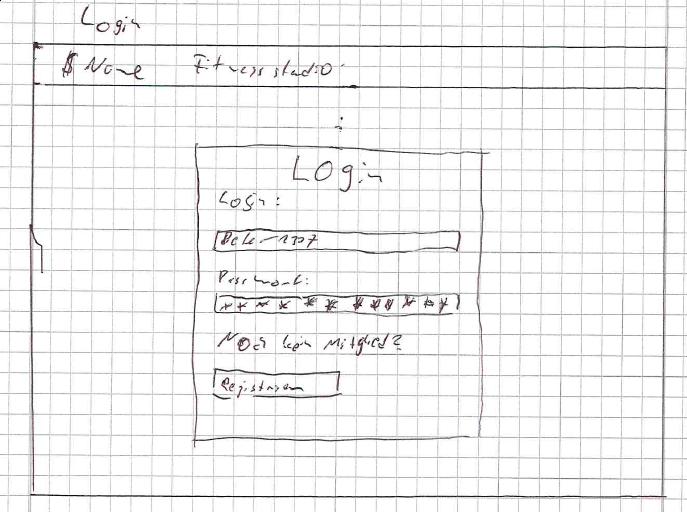 Login
$ Name Fitnessstudio
Login
Login:
Passwort:
************
Noch kein Mitglied?
Registrieren